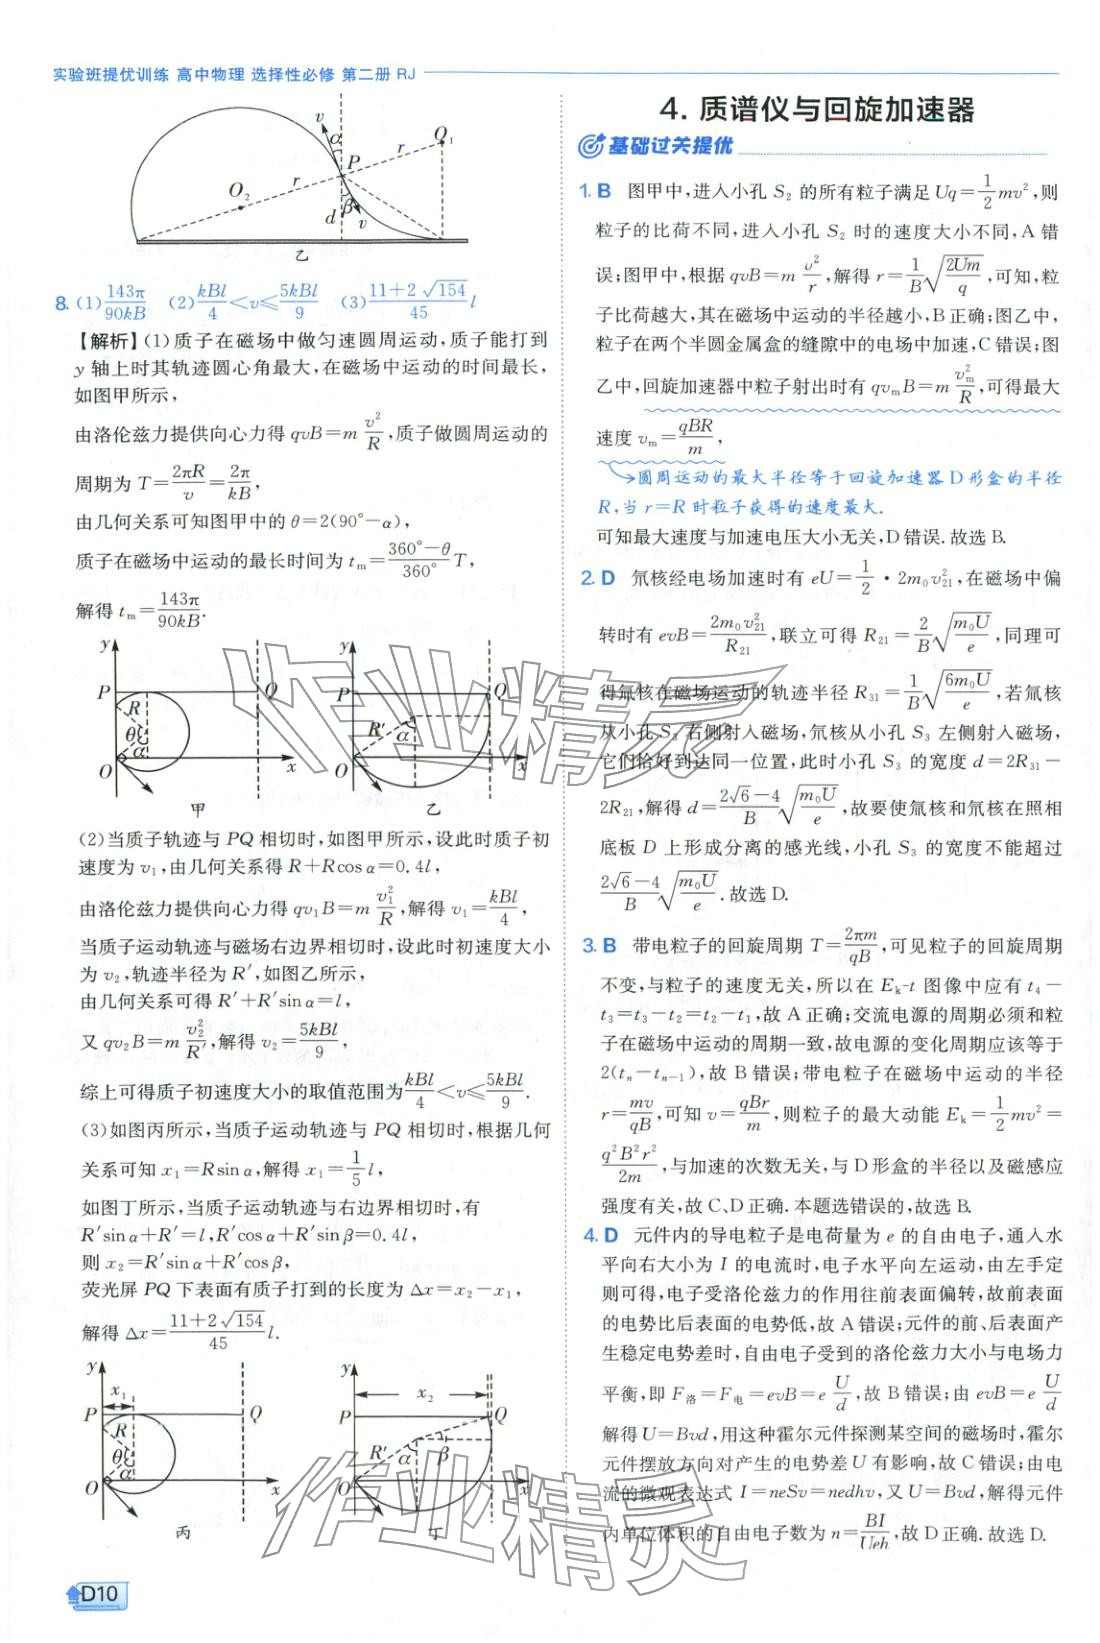 实验班提优训练 高中物理 选择性必修 第二册 RJ
v α P r O₁
r O₂ d β v
乙
8. (1) 143π/90kB (2) kBl/4 < v ≤ 5kBl/9 (3) (11+2√154)/45 l
【解析】(1)质子在磁场中做匀速圆周运动,质子能打到
y 轴上时其轨迹圆心角最大,在磁场中运动的时间最长,
如图甲所示,
由洛伦兹力提供向心力得 qvB=m v²/R,质子做圆周运动的
周期为 T=2πR/v=2π/kB,
由几何关系可知图甲中的 θ=2(90°-α),
质子在磁场中运动的最长时间为 tₘ=(360°-θ)/360° T,
解得 tₘ=143π/90kB.
y P Q R θ α O x 甲
y P Q R′ α O x 乙
(2)当质子轨迹与 PQ 相切时,如图甲所示,设此时质子初
速度为 v₁,由几何关系得 R+Rcos α=0.4l,
由洛伦兹力提供向心力得 qv₁B=m v₁²/R,解得 v₁=kBl/4,
当质子运动轨迹与磁场右边界相切时,设此时初速度大小
为 v₂,轨迹半径为 R′,如图乙所示,
由几何关系可得 R′+R′sin α=l,
又 qv₂B=m v₂²/R′,解得 v₂=5kBl/9,
综上可得质子初速度大小的取值范围为 kBl/4<v≤5kBl/9.
(3)如图丙所示,当质子运动轨迹与 PQ 相切时,根据几何
关系可知 x₁=Rsin α,解得 x₁=1/5 l,
如图丁所示,当质子运动轨迹与右边界相切时,有
R′sin α+R′=l,R′cos α+R′sin β=0.4l,
则 x₂=R′sin α+R′cos β,
荧光屏 PQ 下表面有质子打到的长度为 Δx=x₂-x₁,
解得 Δx=(11+2√154)/45 l.
y x₁ P Q R θ α O x 丙
y x₂ P Q R′ α β O x 丁
D10
4. 质谱仪与回旋加速器
基础过关提优
1. B 图甲中,进入小孔 S₂ 的所有粒子满足 Uq=1/2 mv²,则
粒子的比荷不同,进入小孔 S₂ 时的速度大小不同,A 错
误;图甲中,根据 qvB=m v²/r,解得 r=1/B √(2Um/q),可知,粒
子比荷越大,其在磁场中运动的半径越小,B 正确;图乙中,
粒子在两个半圆金属盒的缝隙中的电场中加速,C 错误;图
乙中,回旋加速器中粒子射出时有 qvₘB=m vₘ²/R,可得最大
速度 vₘ=qBR/m,
圆周运动的最大半径等于回旋加速器 D 形盒的半径
R,当 r=R 时粒子获得的速度最大.
可知最大速度与加速电压大小无关,D 错误.故选 B.
2. D 氘核经电场加速时有 eU=1/2·2m₀v₂₁²,在磁场中偏
转时有 evB=2m₀v₂₁²/R₂₁,联立可得 R₂₁=2/B √(m₀U/e),同理可
得氚核在磁场运动的轨迹半径 R₃₁=1/B √(6m₀U/e),若氚核
从小孔 S₃ 右侧射入磁场,氘核从小孔 S₃ 左侧射入磁场,
它们恰好到达同一位置,此时小孔 S₃ 的宽度 d=2R₃₁-
2R₂₁,解得 d=(2√6-4)/B √(m₀U/e),故要使氘核和氚核在照相
底板 D 上形成分离的感光线,小孔 S₃ 的宽度不能超过
(2√6-4)/B √(m₀U/e).故选 D.
3. B 带电粒子的回旋周期 T=2πm/qB,可见粒子的回旋周期
不变,与粒子的速度无关,所以在 Eₖ-t 图像中应有 t₄-
t₃=t₃-t₂=t₂-t₁,故 A 正确;交流电源的周期必须和粒
子在磁场中运动的周期一致,故电源的变化周期应该等于
2(tₙ-tₙ₋₁),故 B 错误;带电粒子在磁场中运动的半径
r=mv/qB,可知 v=qBr/m,则粒子的最大动能 Eₖ=1/2 mv²=
q²B²r²/2m,与加速的次数无关,与 D 形盒的半径以及磁感应
强度有关,故 C、D 正确.本题选错误的,故选 B.
4. D 元件内的导电粒子是电荷量为 e 的自由电子,通入水
平向右大小为 I 的电流时,电子水平向左运动,由左手定
则可得,电子受洛伦兹力的作用往前表面偏转,故前表面
的电势比后表面的电势低,故 A 错误;元件的前、后表面产
生稳定电势差时,自由电子受到的洛伦兹力大小与电场力
平衡,即 F洛=F电=evB=e U/d,故 B 错误;由 evB=e U/d
解得 U=Bvd,用这种霍尔元件探测某空间的磁场时,霍尔
元件摆放方向对产生的电势差 U 有影响,故 C 错误;由电
流的微观表达式 I=neSv=nedhv,又 U=Bvd,解得元件
内单位体积的自由电子数为 n=BI/Ueh,故 D 正确.故选 D.
作业精灵
作业精灵